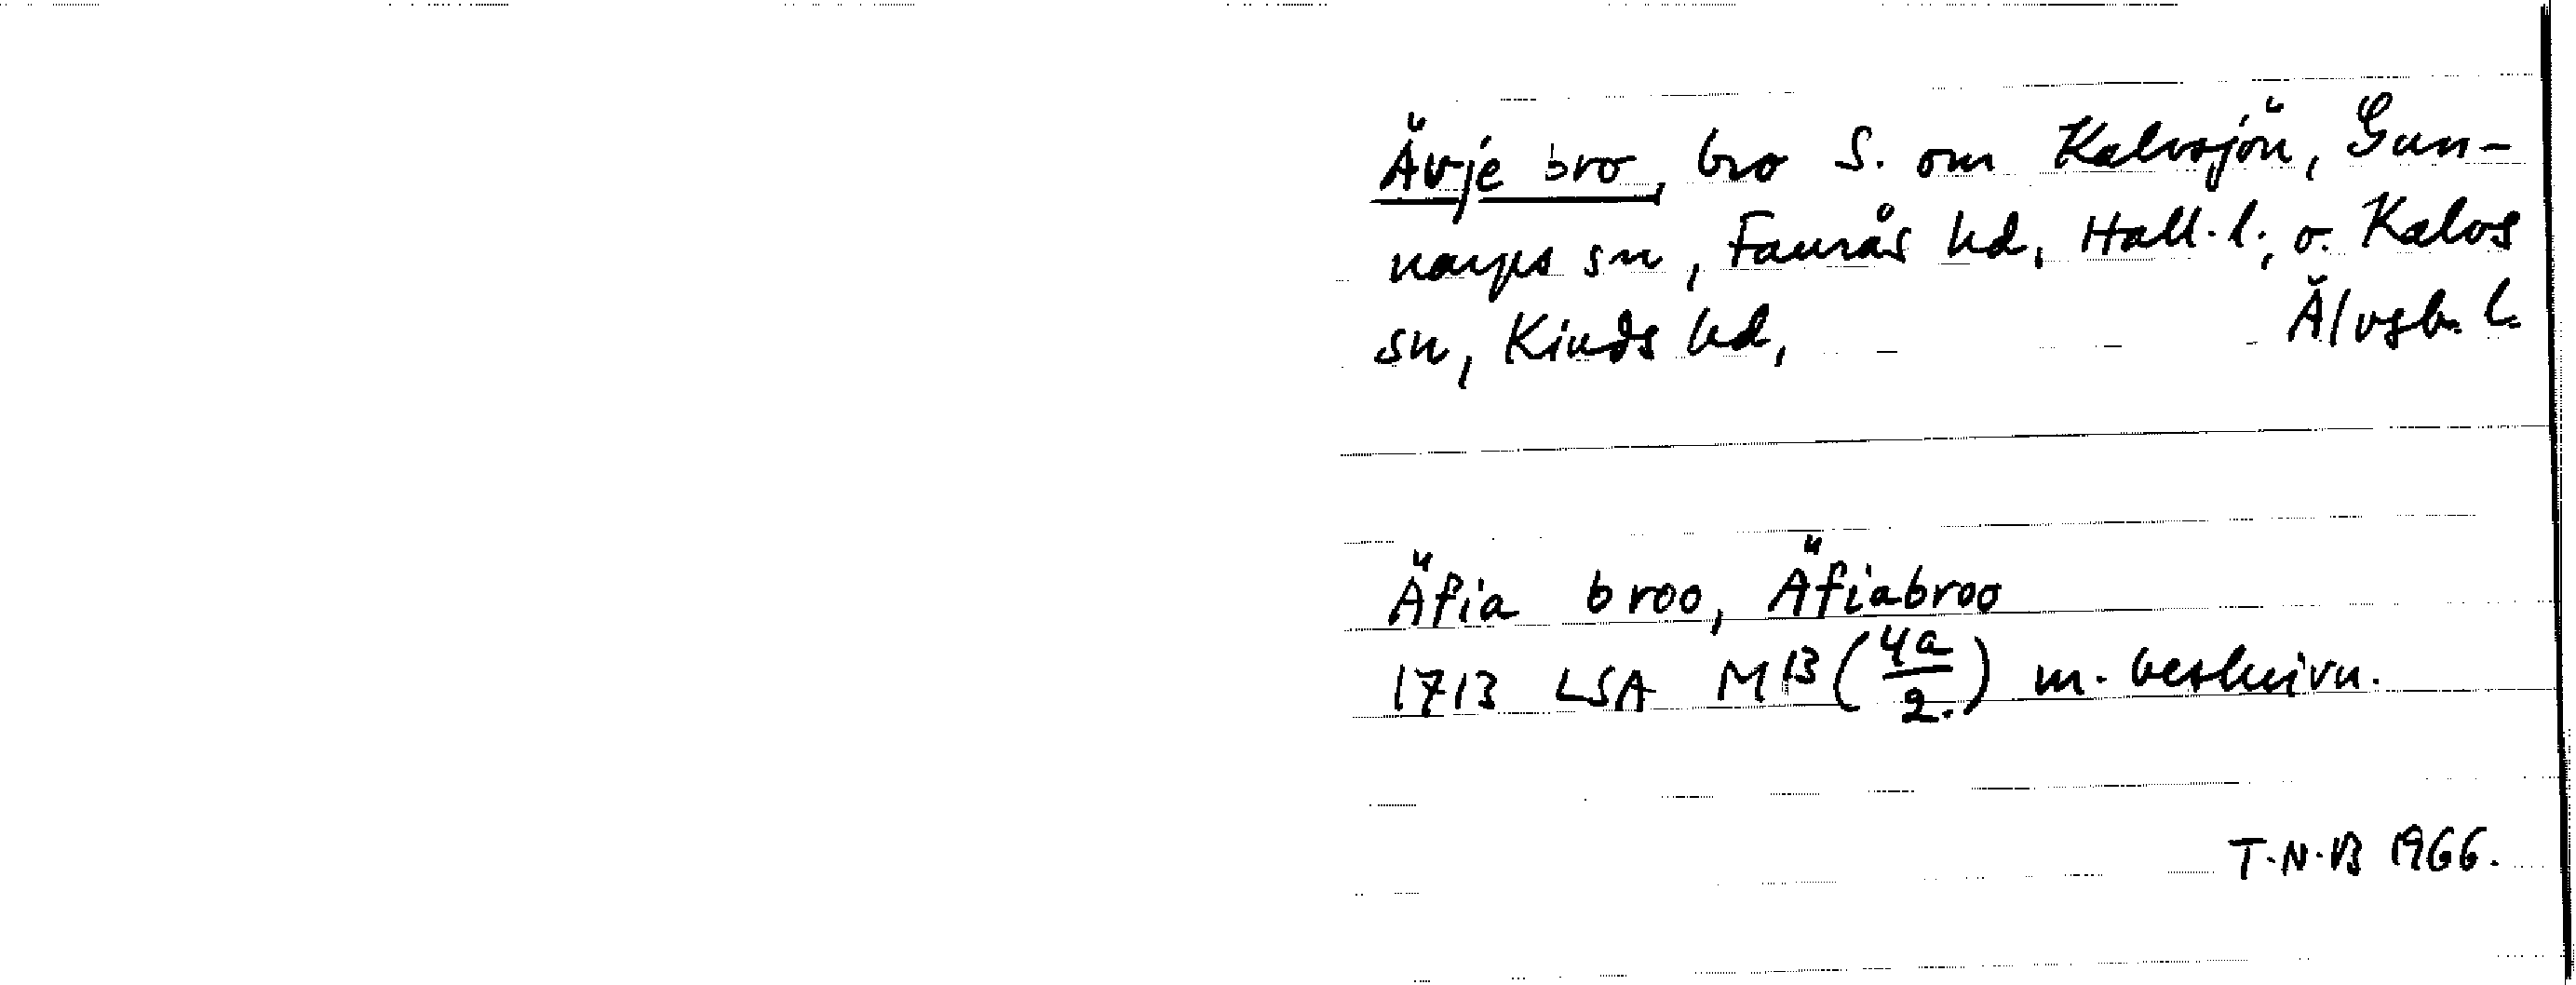 Ävje bro, bro S. om Kalvsjön, Gun-
narps sn, Faurås hd, Hall. l., o. Kalvs
sn, Kinds hd, Älvsb. l.
Äfia broo, Äfiabroo
1713 LSA M13 (4a/2.) m. beskrivn.
T.N.B 1966.